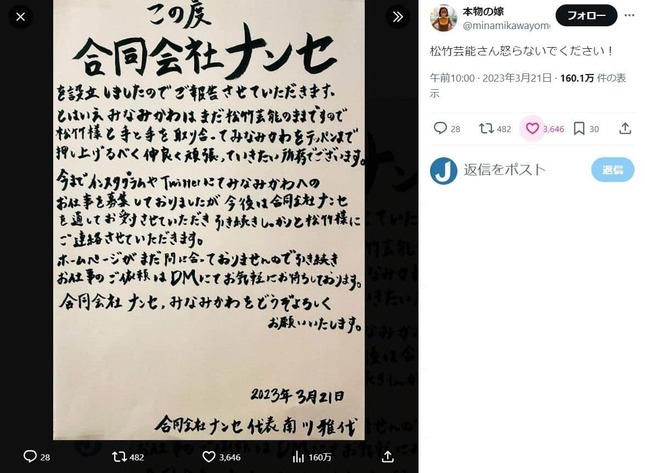 この度
合同会社ナンセ
を設立しましたのでご報告させていただきます。
とはいえみなみかわはまだ松竹芸能のままですので
松竹様と手と手を取り合ってみなみかわをテッペンまで
押し上げるべく仲良く頑張っていきたい所存でございます。
今までインスタグラムやTwitterにてみなみかわへの
お仕事を募集しておりましたが今後は合同会社ナンセ
を通してお受けさせていただき引き続きしっかりと松竹様に
ご連絡させていただきます。
ホームページがまだ間に合っておりませんので引き続き
お仕事のご依頼はDMにてお気軽にお待ちしております。
合同会社ナンセ、みなみかわをどうぞよろしく
お願いいたします。
2023年3月21日
合同会社ナンセ 代表 南川雅代
28 482 3,646 160万
本物の嫁
@minamikawayom
フォロー
松竹芸能さん怒らないでください！
午前10:00 · 2023年3月21日 · 160.1万 件の表
示
28 482 3,646 30
返信をポスト
返信